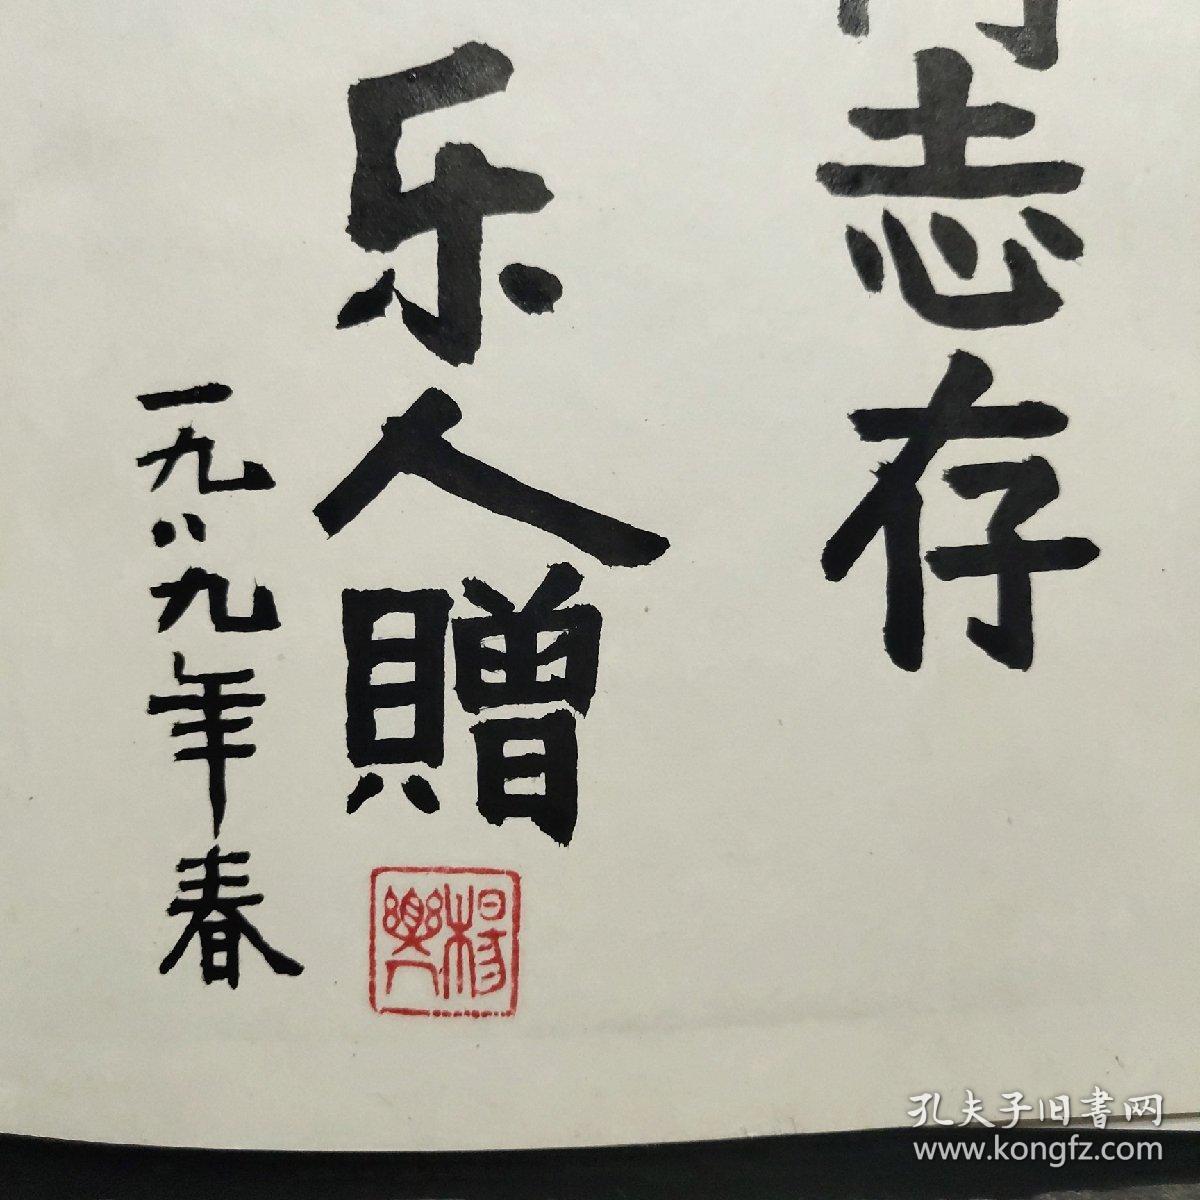 志存
乐人赠
一九八九年春
杨乐人
孔夫子旧书网
www.kongfz.com